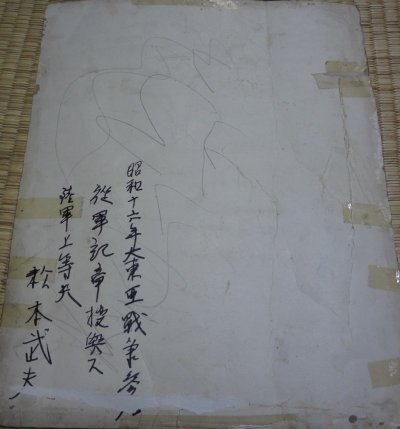 昭和十六年大東亜戰争参ハ
従軍記章授與ス
陸軍上等兵
松本武夫